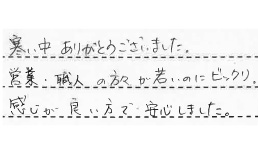 寒い中ありがとうございました。
営業・職人の方々が若いのにビックリ。
感じが良い方で安心しました。